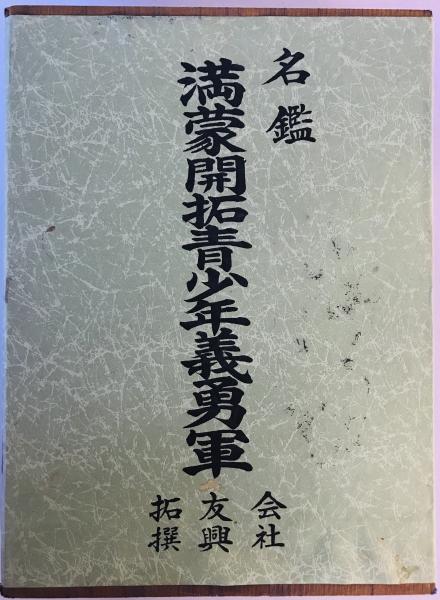 名鑑
満蒙開拓青少年義勇軍
拓友会
撰興社